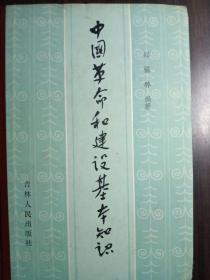 中國革命和建设基本知識
林 编著
吉林人民出版社